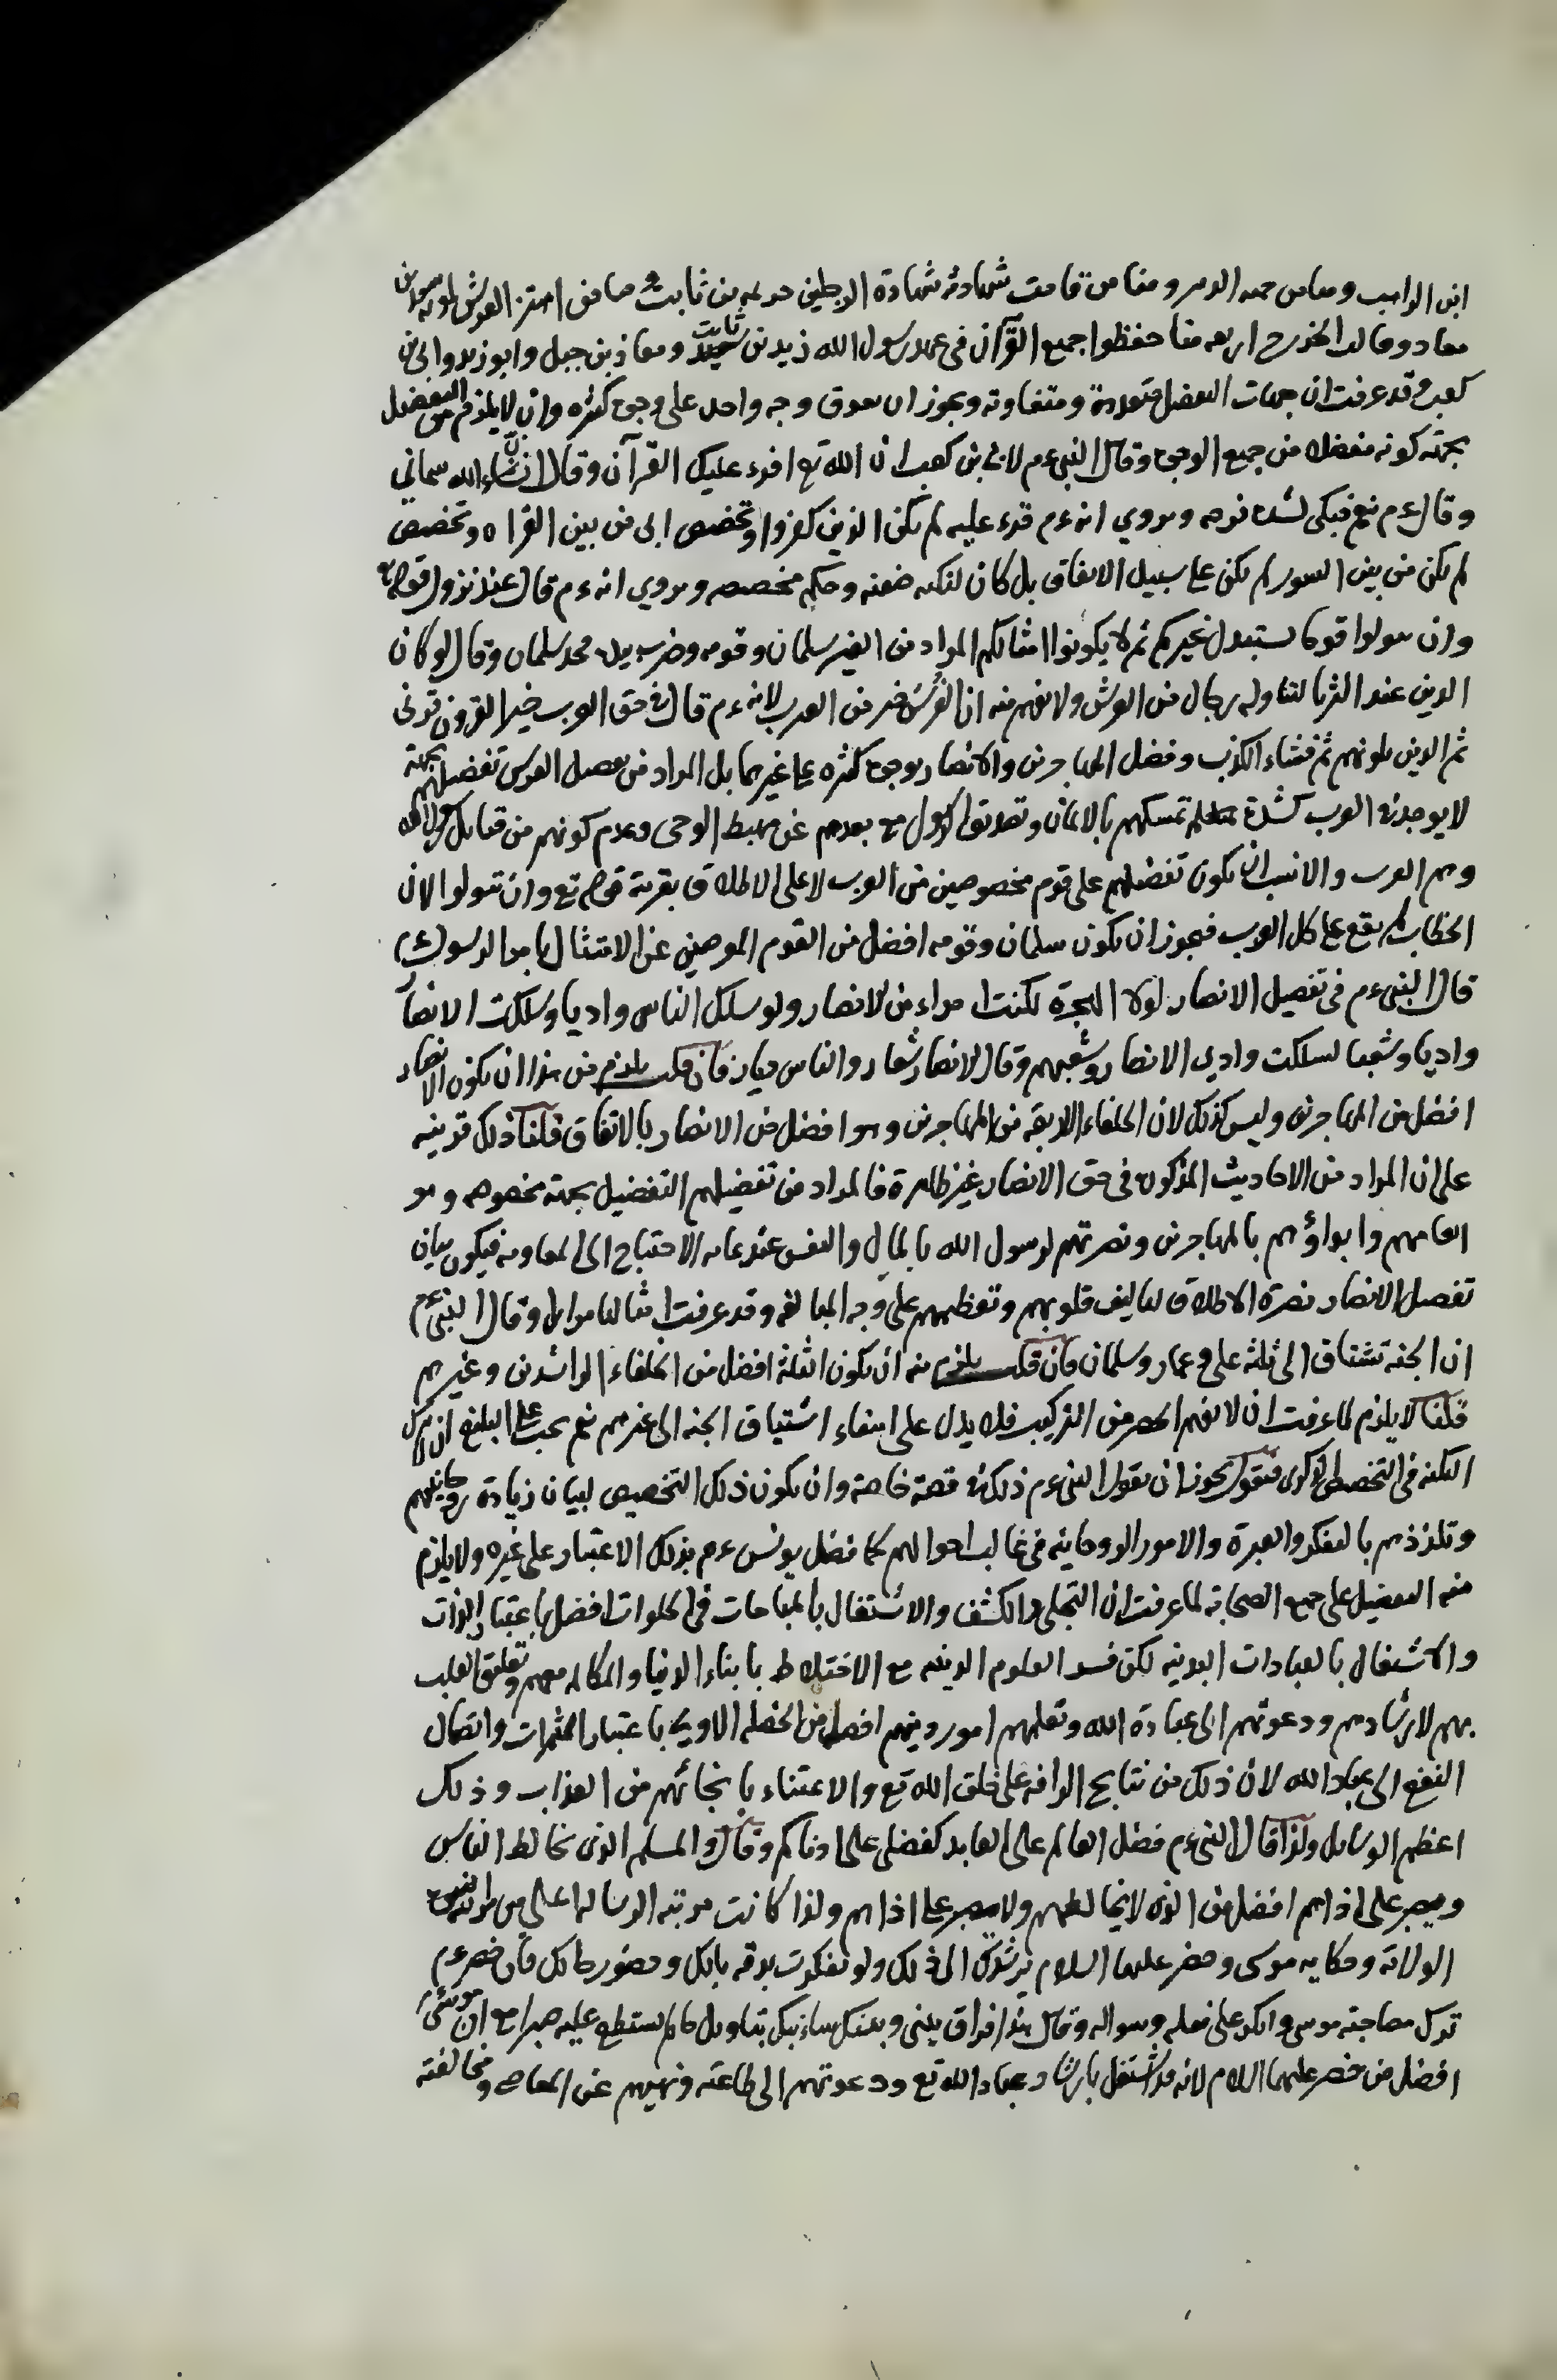 ابن الراهب ومنا من حمته الدبر ومنا من قامت شهادته شهادة الرجلين خزيمة بن ثابت ومنا من اهتز العرش لموته سعد بن
معاد وقالت الخزرج اربعة منا حفظوا جميع القرآن في عهد رسول الله زيد بن ثابت ومعاذ بن جبل وابو زيد وابي بن
كعب وقد عرفت ان جهات التفضل متعددة ومتفاوته ويجوز ان يفوق وجه واحد على وجوه كثيره وان لا يلزم من التفضيل
بجهته كونه مفضلا من جميع الوجوه وقال النبي عم لابي بن كعب ان الله تع اقرء عليك القرآن وقال ان شاء الله سماني
وقال عم نعم فبكى لشدة فرحه وروي انه عم قرء عليه لم يكن الذين كفروا وتخصيص ابي من بين القراء وتخصيص
لم يكن من بين السور لم يكن على سبيل الاتفاق بل كان لنكتة خفية وحكم مخصصه وروي انه عم قال عند نزول قوله تع
وان تتولوا قوما يستبدل غيركم ثم لا يكونوا امثالكم المراد من الغير سلمان وقومه وضرب يده فخذ سلمان وقال لو كان
الدين عند الثريا لتناوله رجال من الفرس ولا يفهم منه ان الفرس خير من العرب لانه عم قال في حق العرب خير القرون قرني
ثم الذين يلونهم ثم فشاء الكذب وفضل المهاجرين والانصار بوجوه كثيره على غيرهما بل المراد من تفضيل الفرس تفضيلهم بجهته
لا يوجد في العرب كشدة تمسكهم بالايمان وتصديق الرسول مع بعدهم عن مهبط الوحي وعدم كونهم من قبايل
وهم العرب والانسب ان يكون تفضيلهم على قوم مخصوصين من العرب لا على الاطلاق بقرينة قوله تع وان تتولوا لان
الخطاب لم يقع على كل العرب فيجوز ان يكون سلمان وقومه افضل من القوم المعرضين عن الامتثال بامر الرسول
قال النبي عم في تفضيل الانصار لولا الهجرة لكنت امراء من الانصار ولو سلك الناس واديا وسلكت الانصار
واديا وشعبا لسلكت وادي الانصار وشعبهم وقال الانصار شعار والناس دثار فان قلت يلزم من هذا ان يكون الانصار
افضل من المهاجرين وليس كذلك لان الخلفاء الاربعة من المهاجرين وهو افضل من الانصار بالاتفاق قلنا ذلك قرينه
على ان المراد من الاحاديث المذكورة في حق الانصار غير ظاهرة فالمراد من تفضيلهم التفضيل بجهته مخصوصه وهو
انعامهم وايواؤهم بالمهاجرين ونصرتهم لرسول الله بالمال والنفس عند غاية الاحتياج الى المعاونة فيكون بيان
تفضيل الانصار بصورة الاطلاق لتاليف قلوبهم وتعظيمهم على وجه المبالغه وقد عرفت امثالنا مرارا وقال النبي عم
ان الجنة تشتاق الى ثلثة علي وعمار وسلمان فان قلت يلزم منه ان يكون الثلثة افضل من الخلفاء الراشدين وغيرهم
قلنا لا يلزم لما عرفت ان لا يفهم الحصر من التركيب فلا يدل على انتفاء اشتياق الجنة الى غيرهم نعم يجب على البليغ ان يدرك
النكتة في التخصيص الذكري فنقول يجوز ان يقول النبي عم ذلك في قصة خاصة وان يكون ذلك التخصيص لبيان زيادة روحانيتهم
وتلذذهم بالتفكر والعبرة والامور الروحانيه في غالب احوالهم كما فضل يونس عم بذلك الاعتبار على غيره ولا يلزم
منه التفضيل على جميع الصحابة لما عرفت ان التجلي والكشف والاشتغال بالمباحات في الخلوات افضل باعتبار الذات
والاشتغال بالعبادات البدنيه لكن نشر العلوم الدينيه مع الاختلاط بابناء الدنيا والمكالمة معهم وتعلق القلب
بهم لارشادهم ودعوتهم الى عبادة الله وتعليمهم امور دينهم افضل من الخصلة الاولى باعتبار الثمرات واتصال
النفع الى عباد الله لان ذلك من نتايج الرافة على خلق الله تع والاعتناء بانجائهم من العذاب وذلك
اعظم الوسايل ولذا قال النبي عم فضل العالم على العابد كفضلي على ادناكم وقال والمسلم الذي يخالط الناس
ويصبر على اذاهم افضل من الذي لا يخالطهم ولا يصبر على اذاهم ولذا كانت مرتبة الرسالة اعلى من مرتبة النبوة
الولاية وحكاية موسى وخضر عليهما السلام يرشدك الى ذلك ولو تفكرت بدقة بالك وحضور حالك فان خضر عم
ترك مصاحبة موسى وانكر على فعله وسواله وقال هذا فراق بيني وبينك سانبئك بتاويل ما لم تستطع عليه صبرا مع ان موسى
افضل من خضر عليهما السلام لانه قد اشتغل بارشاد عباد الله تع ودعوتهم الى طاعته ونهيهم عن المعاصي ومخالفته